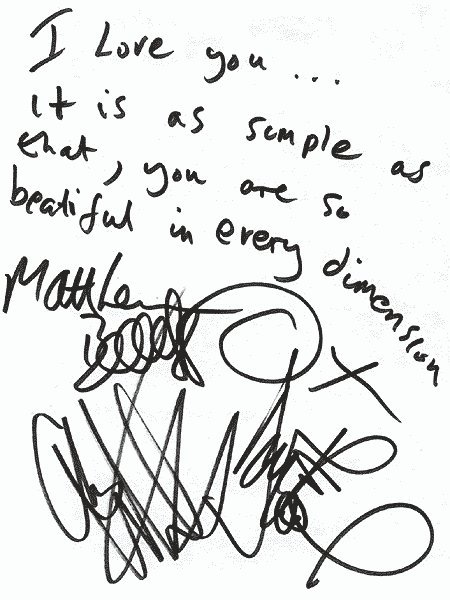 I Love you ...
it is as simple as
that, you are so
beatiful in every dimension
Matthew
X